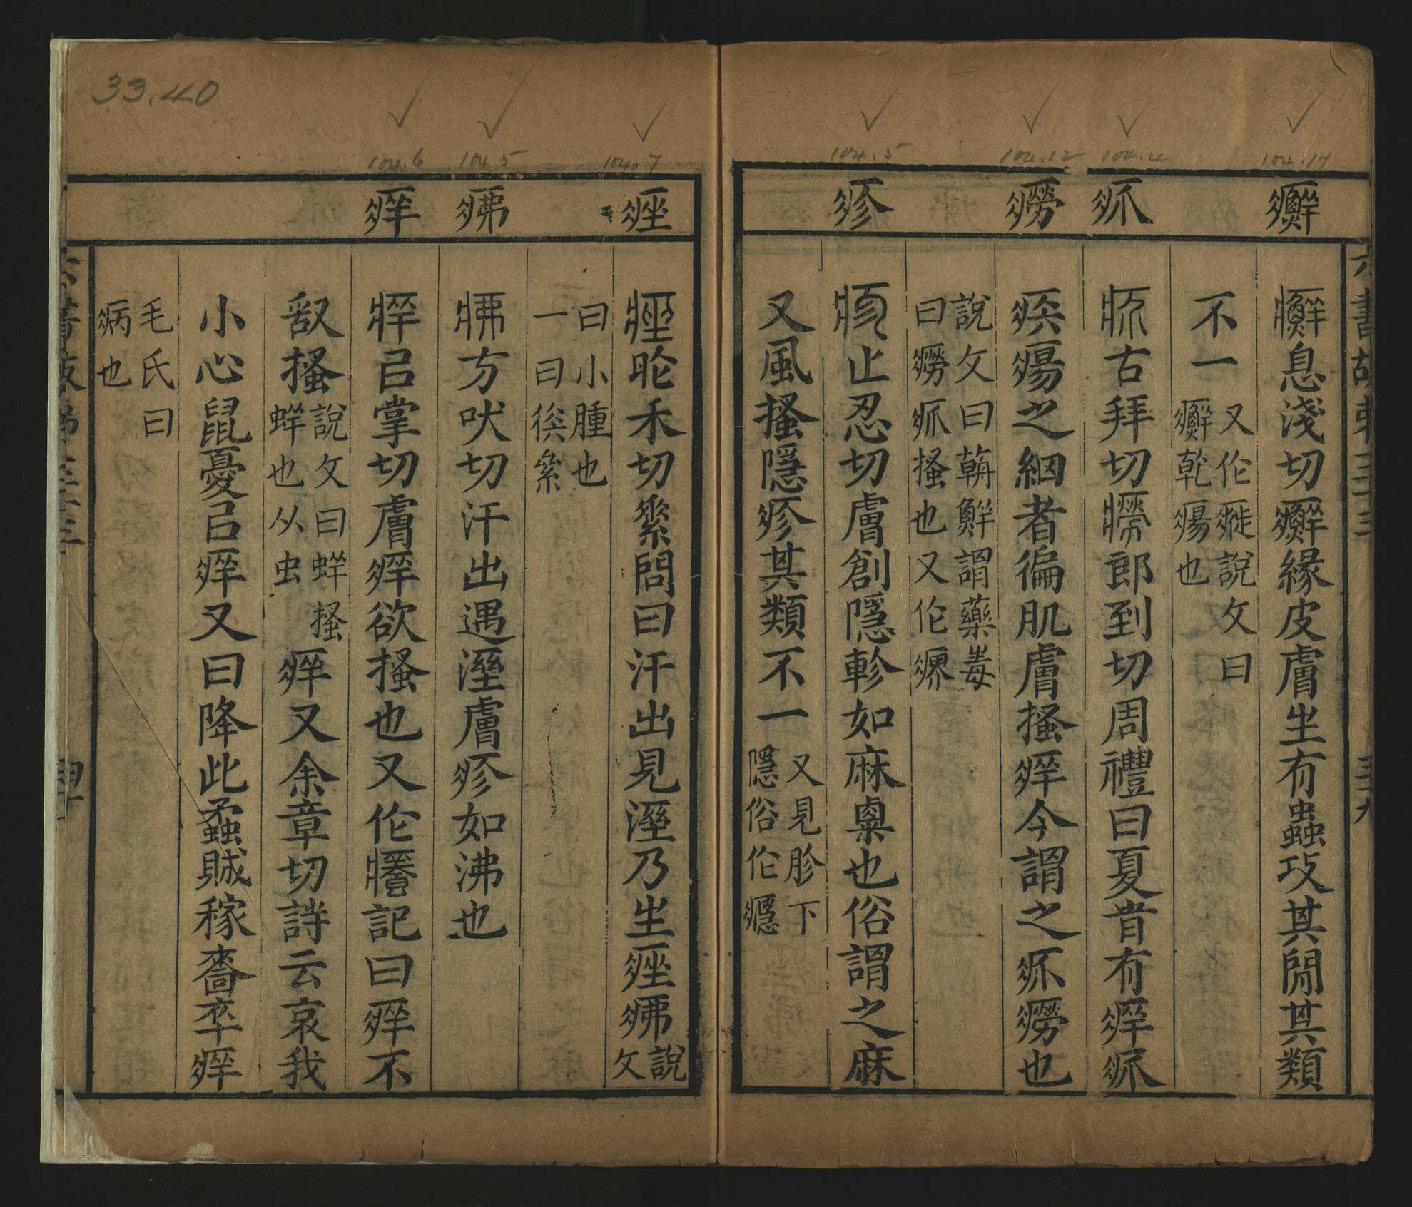 癬
疥
癆
疹
癬息淺切癬緣皮膚生有蟲攻其閒其類
不一又作㿅說文曰癬乾瘍也
疥古拜切癆郎到切周禮曰夏皆有痒疥
疾瘍之細者徧肌膚搔痒今謂之疥癆也
說文曰朝鮮謂藥毒曰癆疥搔也又作𤻝
疹止忍切膚創隱軫如麻粟也俗謂之麻
又風搔隱疹其類不一又見胗下隱俗作癮
痤
疿
痒
痤昨禾切素問曰汗出見溼乃生痤疿說文
曰小腫也一曰族絫
疿方吠切汗出遇溼膚疹如沸也
痒㠯掌切膚痒欲搔也又作癢記曰痒不
敢搔說文曰蛘搔蛘也从虫痒又余章切詩云哀我
小心鼠憂㠯痒又曰降此蟊賊稼穡卒痒
毛氏曰病也
六書故弟三十三
33.40
104.6
104.5
104.7
104.5
104.12
104.4
104.17